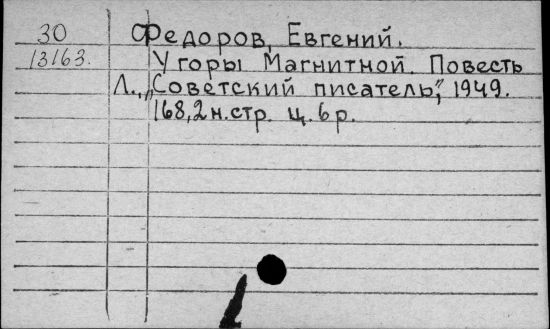 30 Федоров, Евгений.
13163. У горы Магнитной. Повесть
Л., „Советский писатель", 1949.
168,2н.стр. ц. 6р.